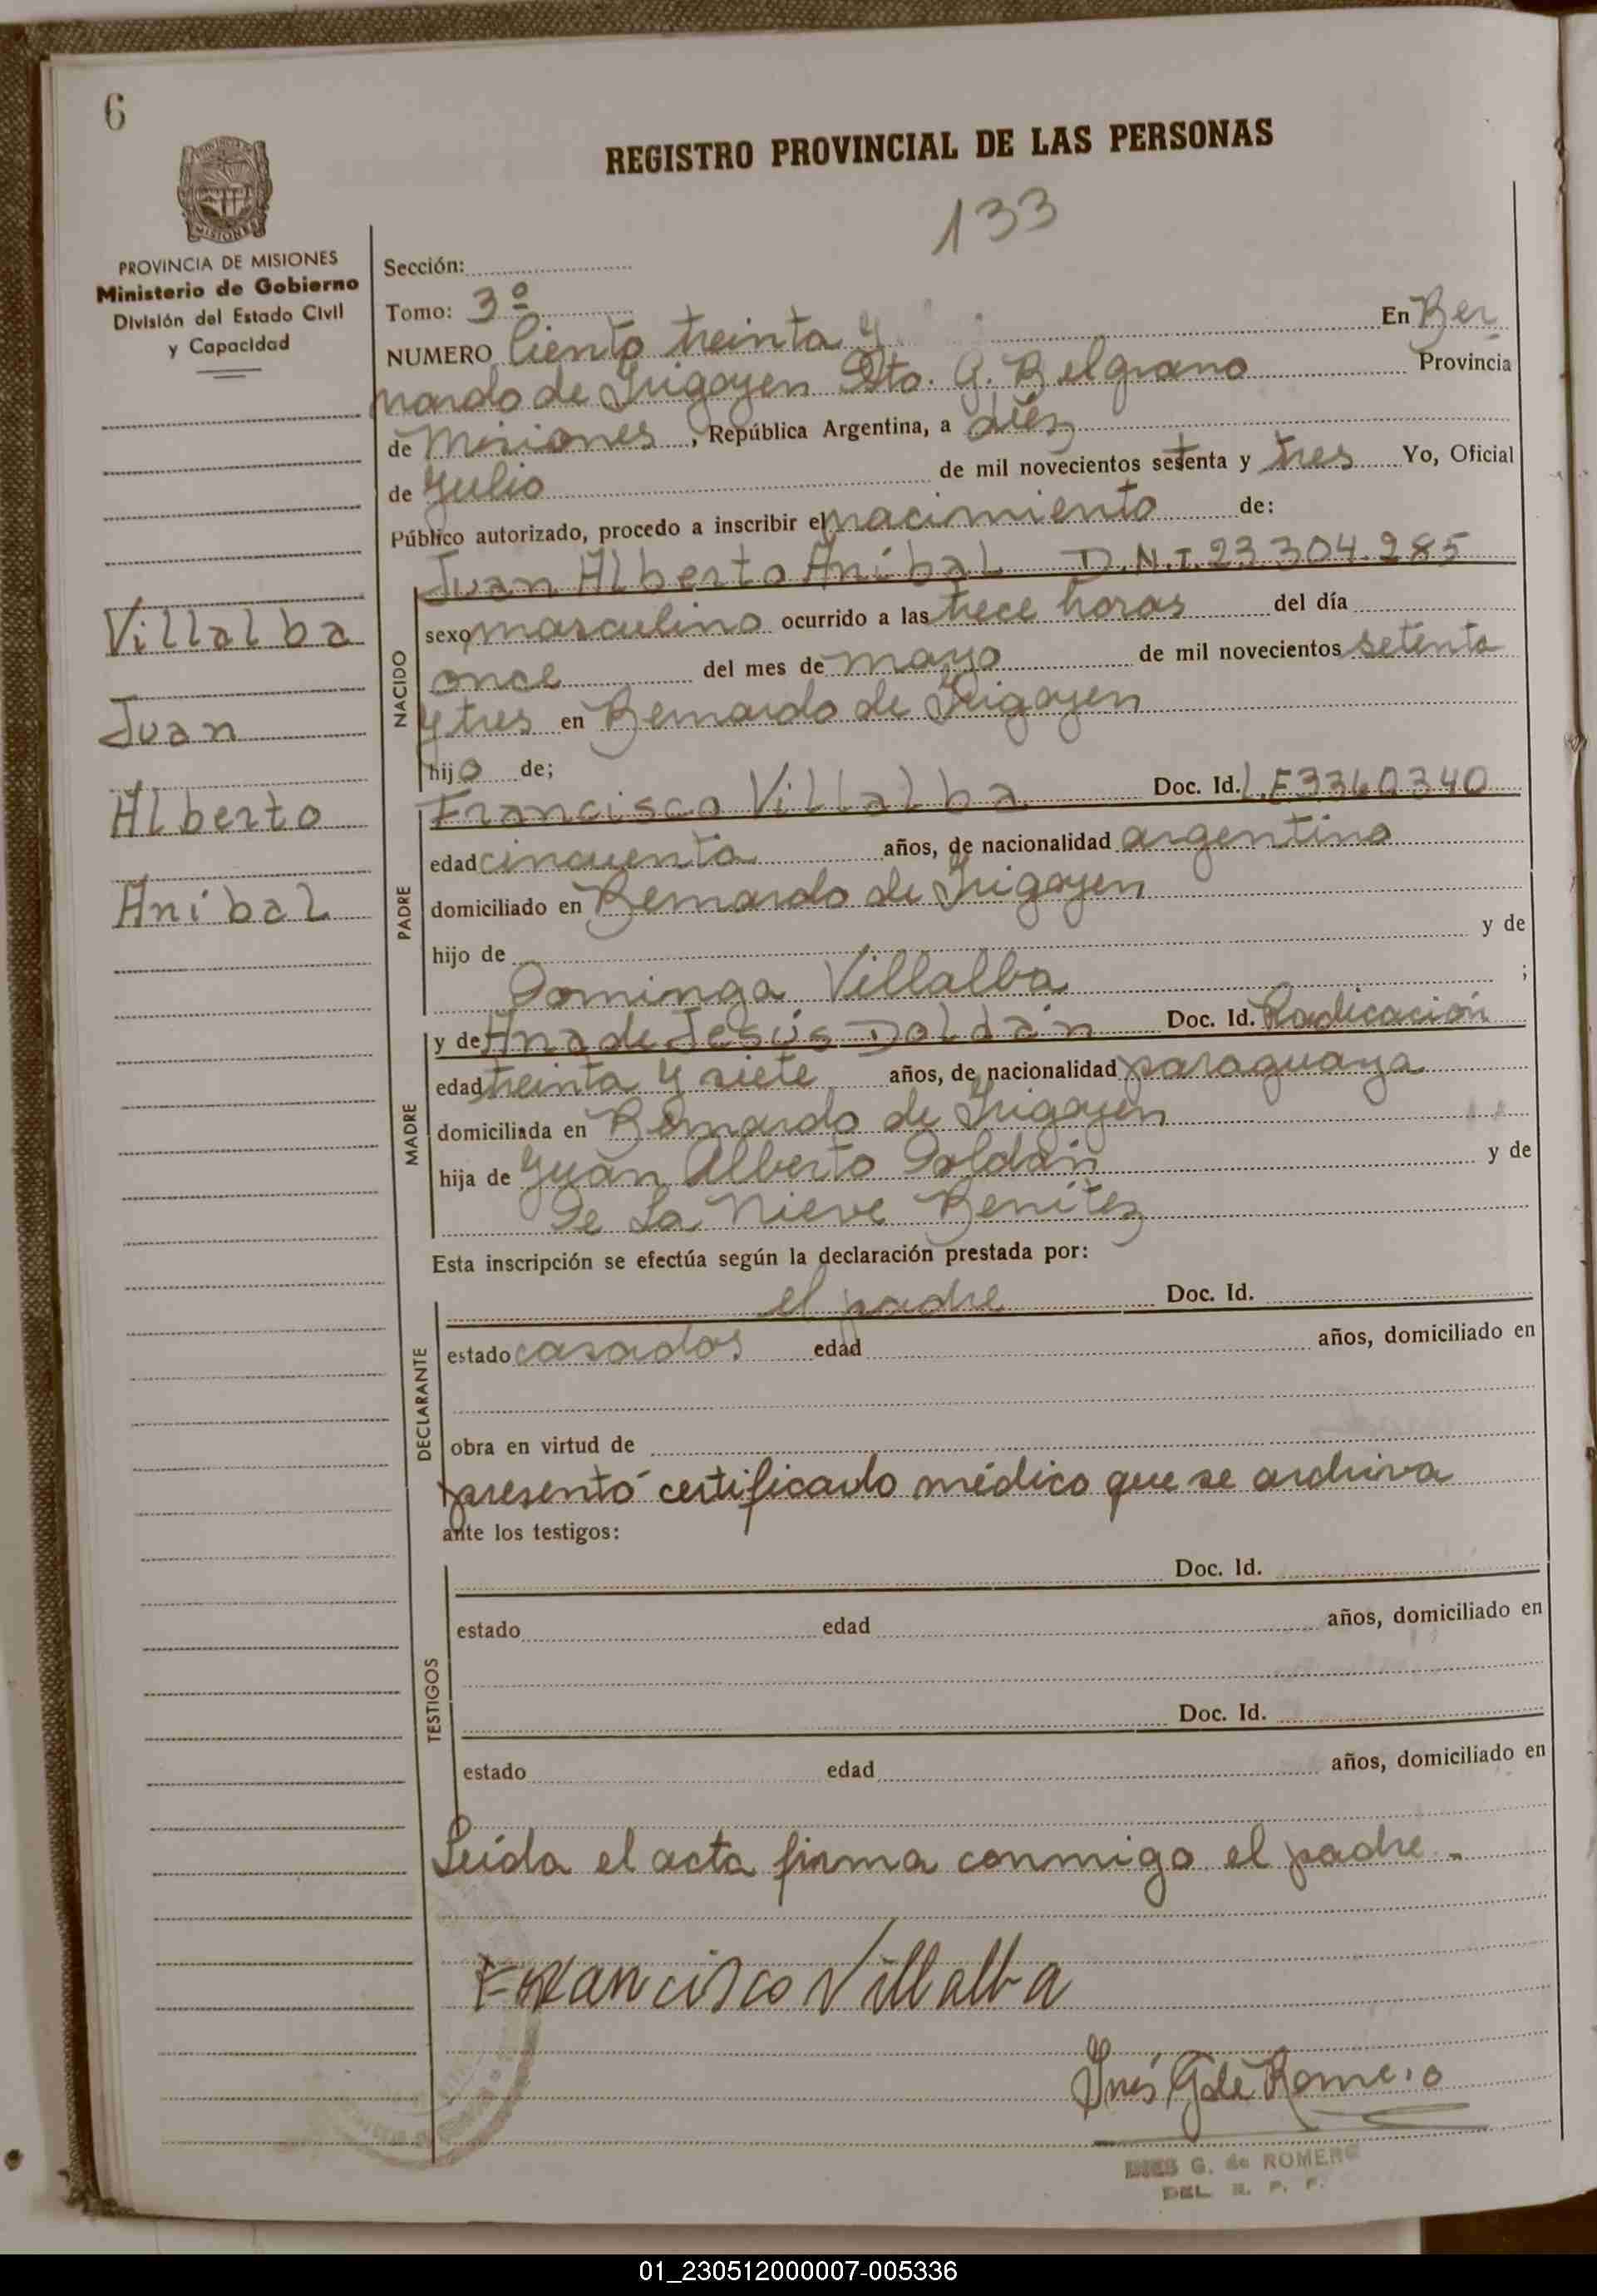 6
REGISTRO PROVINCIAL DE LAS PERSONAS
133
PROVINCIA DE MISIONES
Ministerio de Gobierno
División del Estado Civil
y Capacidad
Villalba
Juan
Alberto
Anibal
Sección:
Tomo: 3º
NUMERO Ciento treinta y En Ber
nardo de Irigoyen Dto. G. Belgrano Provincia
de Misiones, República Argentina, a diez
de Julio de mil novecientos setenta y tres Yo, Oficial
Público autorizado, procedo a inscribir el nacimiento de:
NACIDO
Juan Alberto Anibal D.N.I. 23.304.285
sexo masculino ocurrido a las trece horas del día
once del mes de mayo de mil novecientos setenta
y tres en Bernardo de Irigoyen
hijo de;
PADRE
Francisco Villalba Doc. Id. L.E 3360340
edad cincuenta años, de nacionalidad argentina
domiciliado en Bernardo de Irigoyen
hijo de y de
Dominga Villalba ;
MADRE
y de Ana de Jesús Doldán Doc. Id. Radicación
edad treinta y siete años, de nacionalidad paraguaya
domiciliada en Bernardo de Irigoyen
hija de Juan Alberto Doldán y de
De La Nieve Benítez
Esta inscripción se efectúa según la declaración prestada por:
DECLARANTE
el padre Doc. Id.
estado casados edad años, domiciliado en
obra en virtud de
presentó certificado médico que se archiva
ante los testigos:
TESTIGOS
Doc. Id.
estado edad años, domiciliado en
Doc. Id.
estado edad años, domiciliado en
Leída el acta firma conmigo el padre.-
Francisco Villalba
Inés G de Romero
INES G. de ROMERO
DEL R. P. P.
01_230512000007-005336